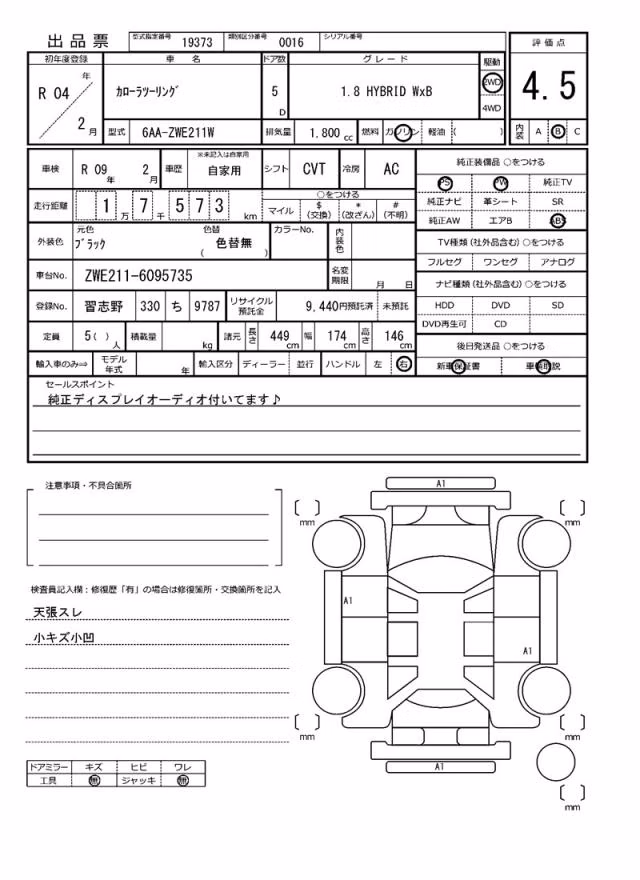 出品票 型式指定番号 19373 類別区分番号 0016 シリアル番号
評価点
4.5
内装 A B C
初年度登録 車名 ドア数 グレード 駆動
R 04 年 2 月 カローラツーリング 5 D 1.8 HYBRID WxB 2WD
4WD
型式 6AA-ZWE211W 排気量 1.800 cc 燃料 ガソリン 軽油 ( )
車検 R 09 年 2 月 車歴 ※未記入は自家用 自家用 シフト CVT 冷房 AC
走行距離 1 万 7 千 5 7 3 km
○をつける
マイル $(交換) *(改ざん) #(不明)
外装色 元色 ブラック 色替 ( 色替無 ) カラーNo. 内装色
車台No. ZWE211-6095735 名変期限 月 日
登録No. 習志野 330 ち 9787 リサイクル預託金 9,440円預託済 未預託
定員 5( ) 人 積載量 kg 諸元 長さ 449 cm 幅 174 cm 高さ 146 cm
輸入車のみ⇒ モデル年式 年 輸入区分 ディーラー 並行 ハンドル 左 右
純正装備品 ○をつける
PS PW 純正TV
純正ナビ 革シート SR
純正AW エアB ABS
TV種類(社外品含む)○をつける
フルセグ ワンセグ アナログ
ナビ種類(社外品含む)○をつける
HDD DVD SD
DVD再生可 CD
後日発送品 ○をつける
新車保証書 車輌取説
セールスポイント
純正ディスプレイオーディオ付いてます♪
注意事項・不具合箇所
検査員記入欄：修復歴「有」の場合は修復箇所・交換箇所を記入
天張スレ
小キズ小凹
ドアミラー キズ ヒビ ワレ
工具 無 ジャッキ 無
A1
mm
mm
A1
A1
mm
mm
A1
mm